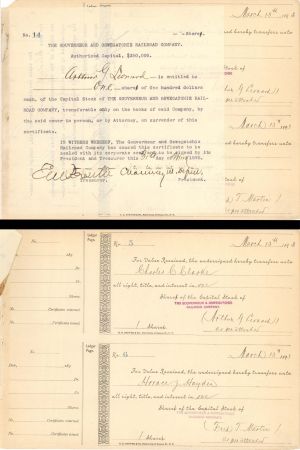 March 13th 189
No. 14
Shares
and hereby transfer unto
THE GOUVERNEUR AND OSWEGATCHIE RAILROAD COMPANY.
Authorized Capital, $350,000.
Arthur G Leonard is entitled to
One share of One Hundred Dollars
each, of the Capital Stock of THE GOUVERNEUR AND OSWEGATCHIE RAIL-
ROAD COMPANY, transferable only on the books of said Company, by
the said owner in person, or by Attorney, on surrender of this
certificate.
IN WITNESS WHEREOF, The Gouverneur and Oswegatchie
Railroad Company has caused this certificate to be
sealed with its corporate seal and to be signed by its
President and Treasurer this day of 189
Treasurer.
President.
Stock of
March 13th 189
and hereby transfer unto
Stock of
Ledger Page.
No. 5
March 13th 189
For Value Received, the undersigned hereby transfers unto
Charles C Clarke
all right, title, and interest in one
Shares of the Capital Stock of
THE GOUVERNEUR & OSWEGATCHIE
RAILROAD COMPANY.
Arthur G Leonard
1 Share
No.
189
To
Shares
Certificate issued
Certificate returned
Ledger Page.
No. 6
March 13th 189
For Value Received, the undersigned hereby transfers unto
Horace J Hayden
all right, title, and interest in one
Shares of the Capital Stock of
THE GOUVERNEUR & OSWEGATCHIE
RAILROAD COMPANY.
Fred T Martin
1 Share
No.
189
To
Shares
Certificate issued
Certificate returned